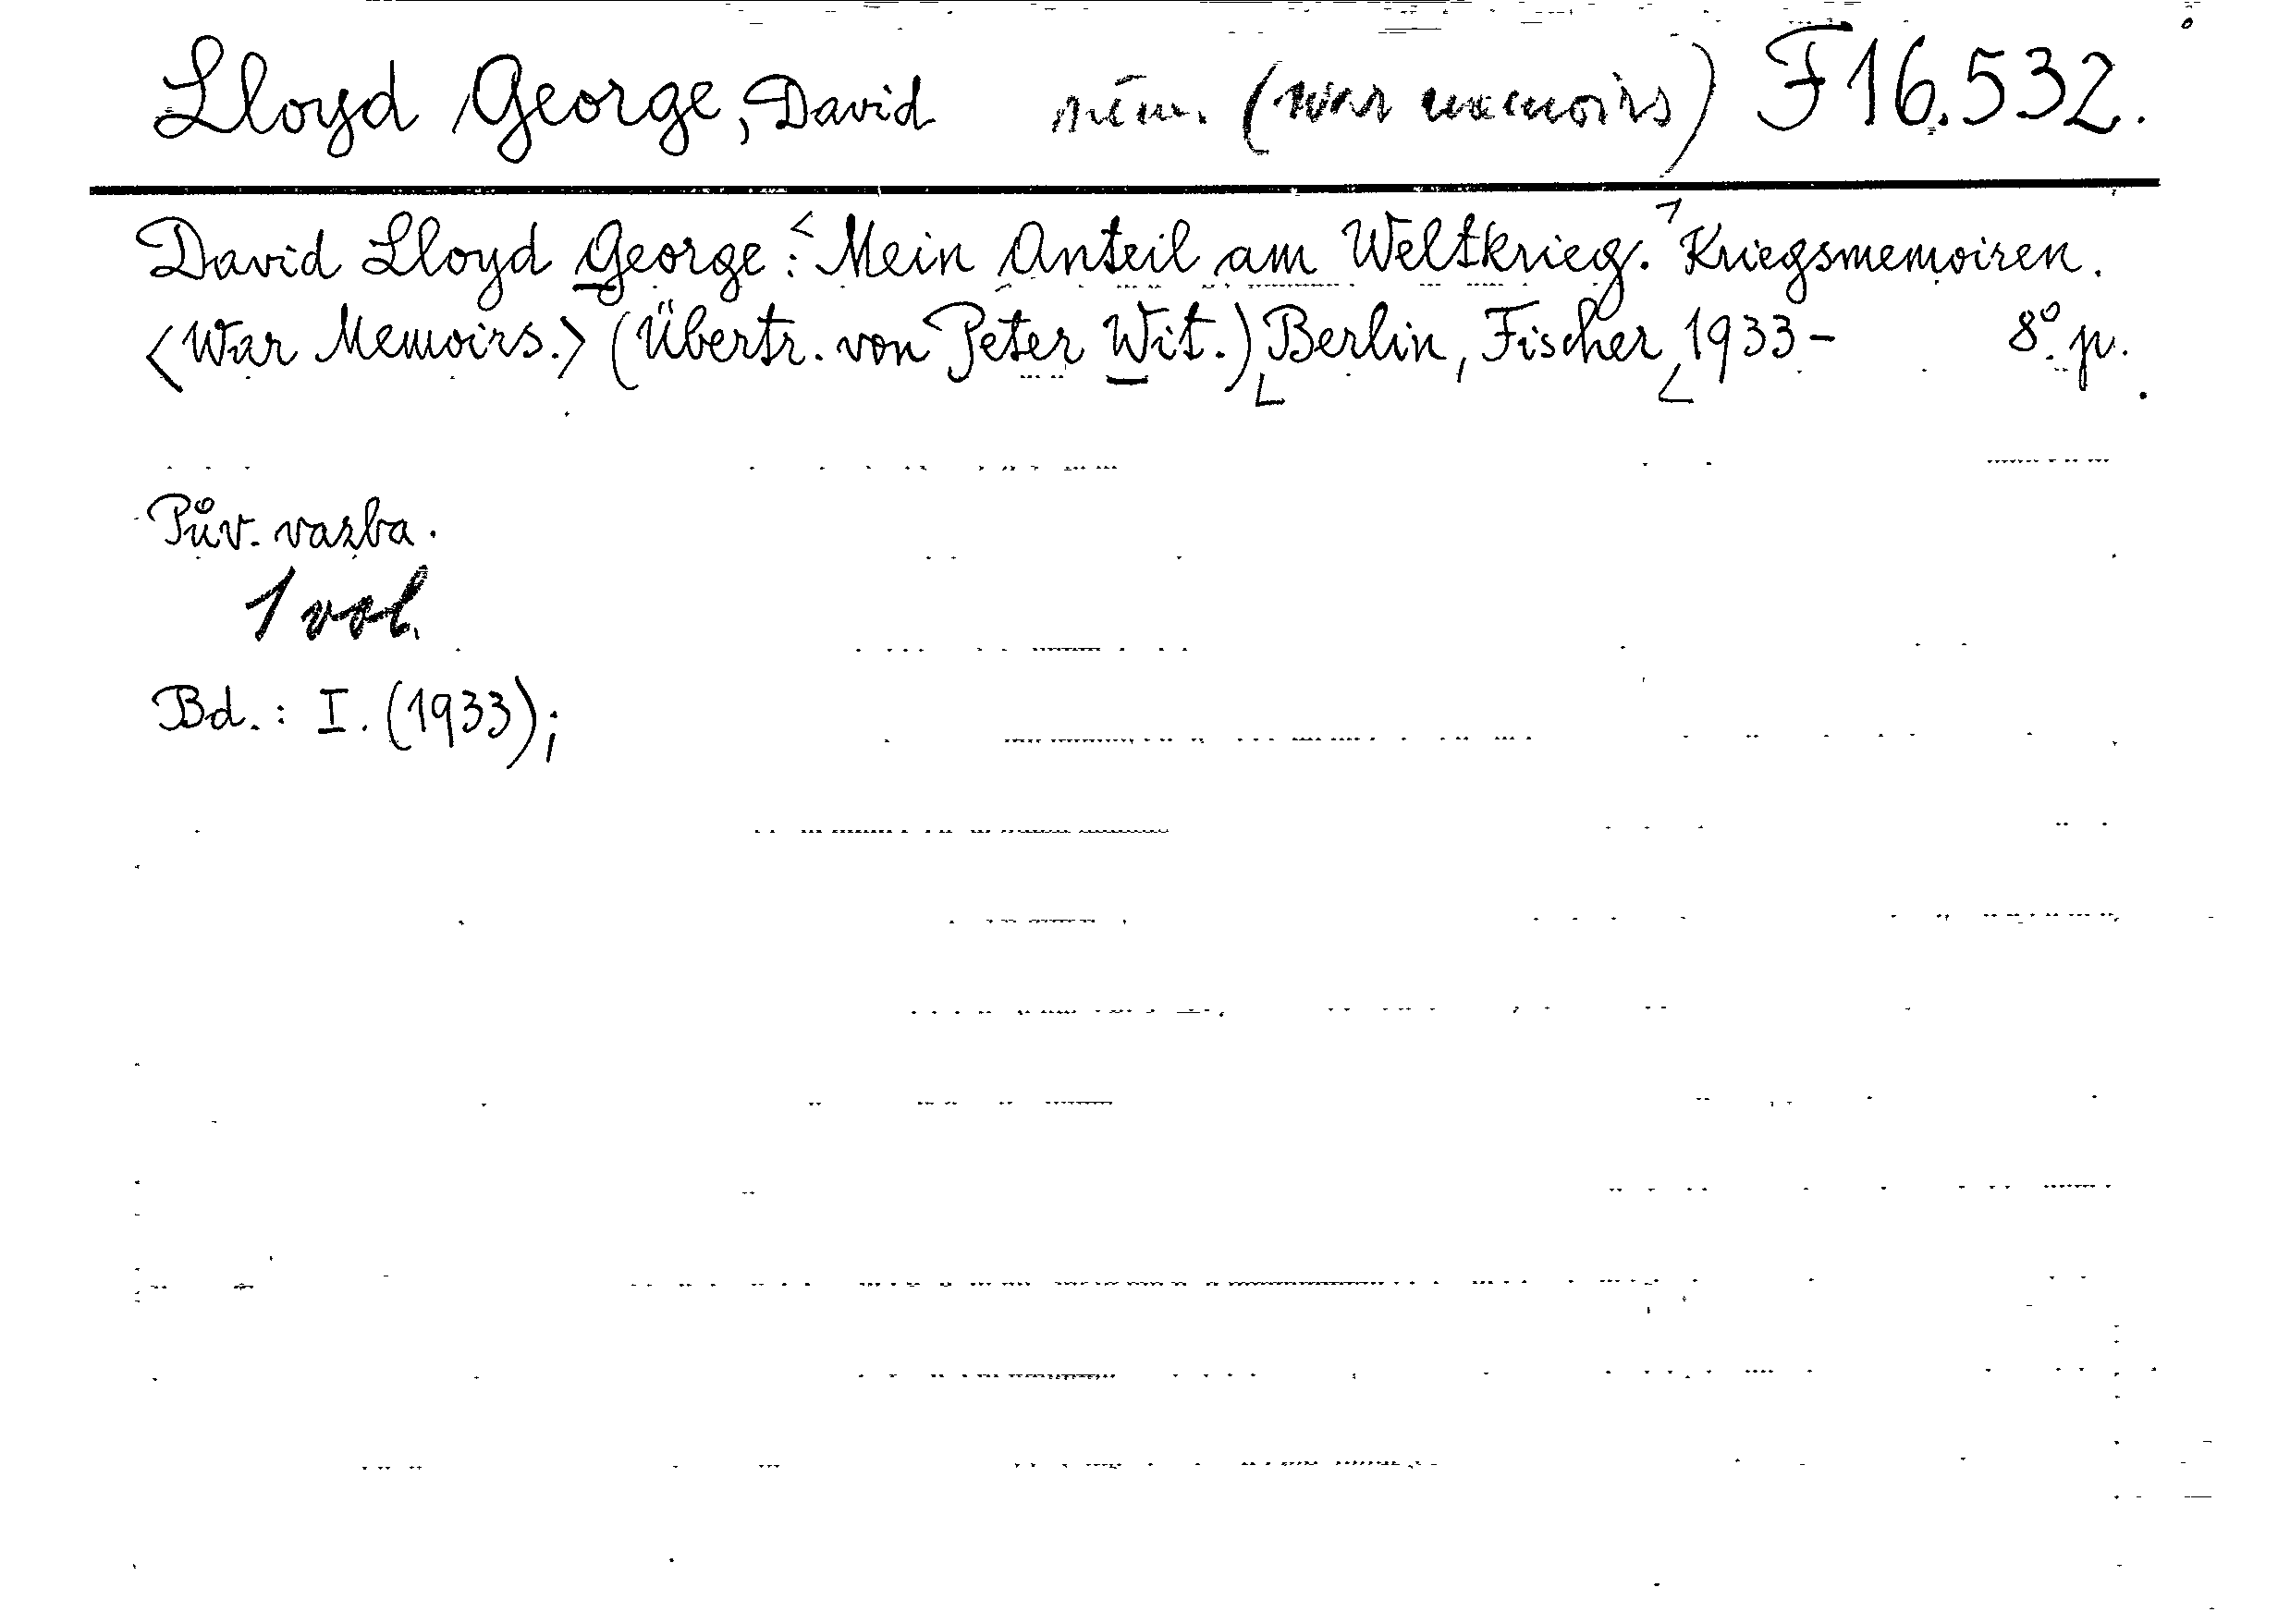 Lloyd George, David něm. (War memoirs) F 16.532.
David Lloyd George: <Mein Anteil am Weltkrieg.> Kriegsmemoiren.
<War Memoirs.> (Übertr. von Peter Wit.) Berlin, Fischer, 1933- 8°. p.
Pův. vazba.
1 vol.
Bd.: I. (1933);